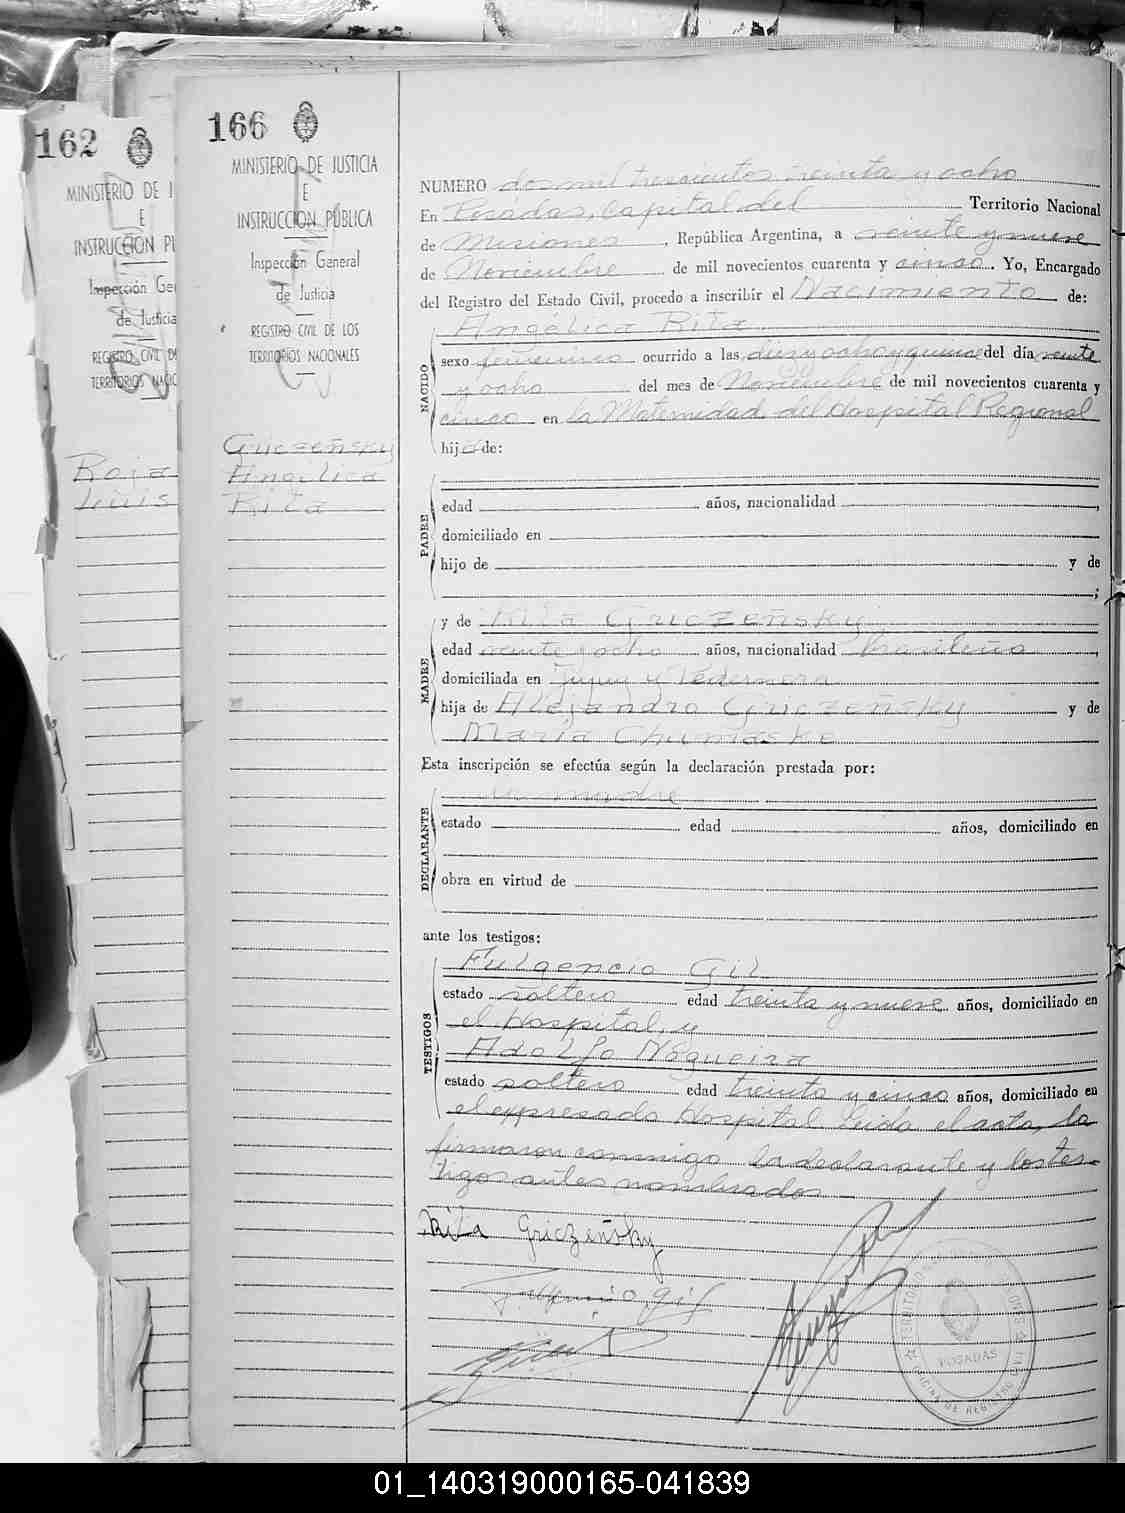 162
MINISTERIO DE J
E
INSTRUCCION PU
Inspección Gen
de Justicia
REGISTRO CIVIL DE
TERRITORIOS NACIO
Roja
Luis
166
MINISTERIO DE JUSTICIA
E
INSTRUCCION PUBLICA
Inspección General
de Justicia
REGISTRO CIVIL DE LOS
TERRITORIOS NACIONALES
Griczeñsky
Angélica
Rita
NUMERO dos mil trescientos treinta y ocho
En Posadas, Capital del Territorio Nacional
de Misiones, República Argentina, a veinte y nueve
de Noviembre de mil novecientos cuarenta y cinco. Yo, Encargado
del Registro del Estado Civil, procedo a inscribir el Nacimiento de:
NACIDO
Angélica Rita
sexo femenino ocurrido a las diez y ocho y quince del día veinte
y ocho del mes de Noviembre de mil novecientos cuarenta y
cinco en la Maternidad del Hospital Regional
hija de:
PADRE
edad años, nacionalidad ,
domiciliado en
hijo de y de
;
MADRE
y de Rita Griczeñsky
edad veinte y ocho años, nacionalidad brasileña,
domiciliada en Jujuy y Pedernera
hija de Alejandro Griczeñsky y de
María Chumaske
Esta inscripción se efectúa según la declaración prestada por:
DECLARANTE
la madre
estado edad años, domiciliado en
obra en virtud de
ante los testigos:
TESTIGOS
Fulgencio Gil
estado soltero edad treinta y nueve años, domiciliado en
el Hospital, y
Adolfo Nogueira
estado soltero edad treinta y cinco años, domiciliado en
el expresado Hospital. Leida el acta, la
firmaron conmigo la declarante y los tes-
tigos antes nombrados
Rita Griczeñsky
Fulgencio Gil
POSADAS
01_140319000165-041839